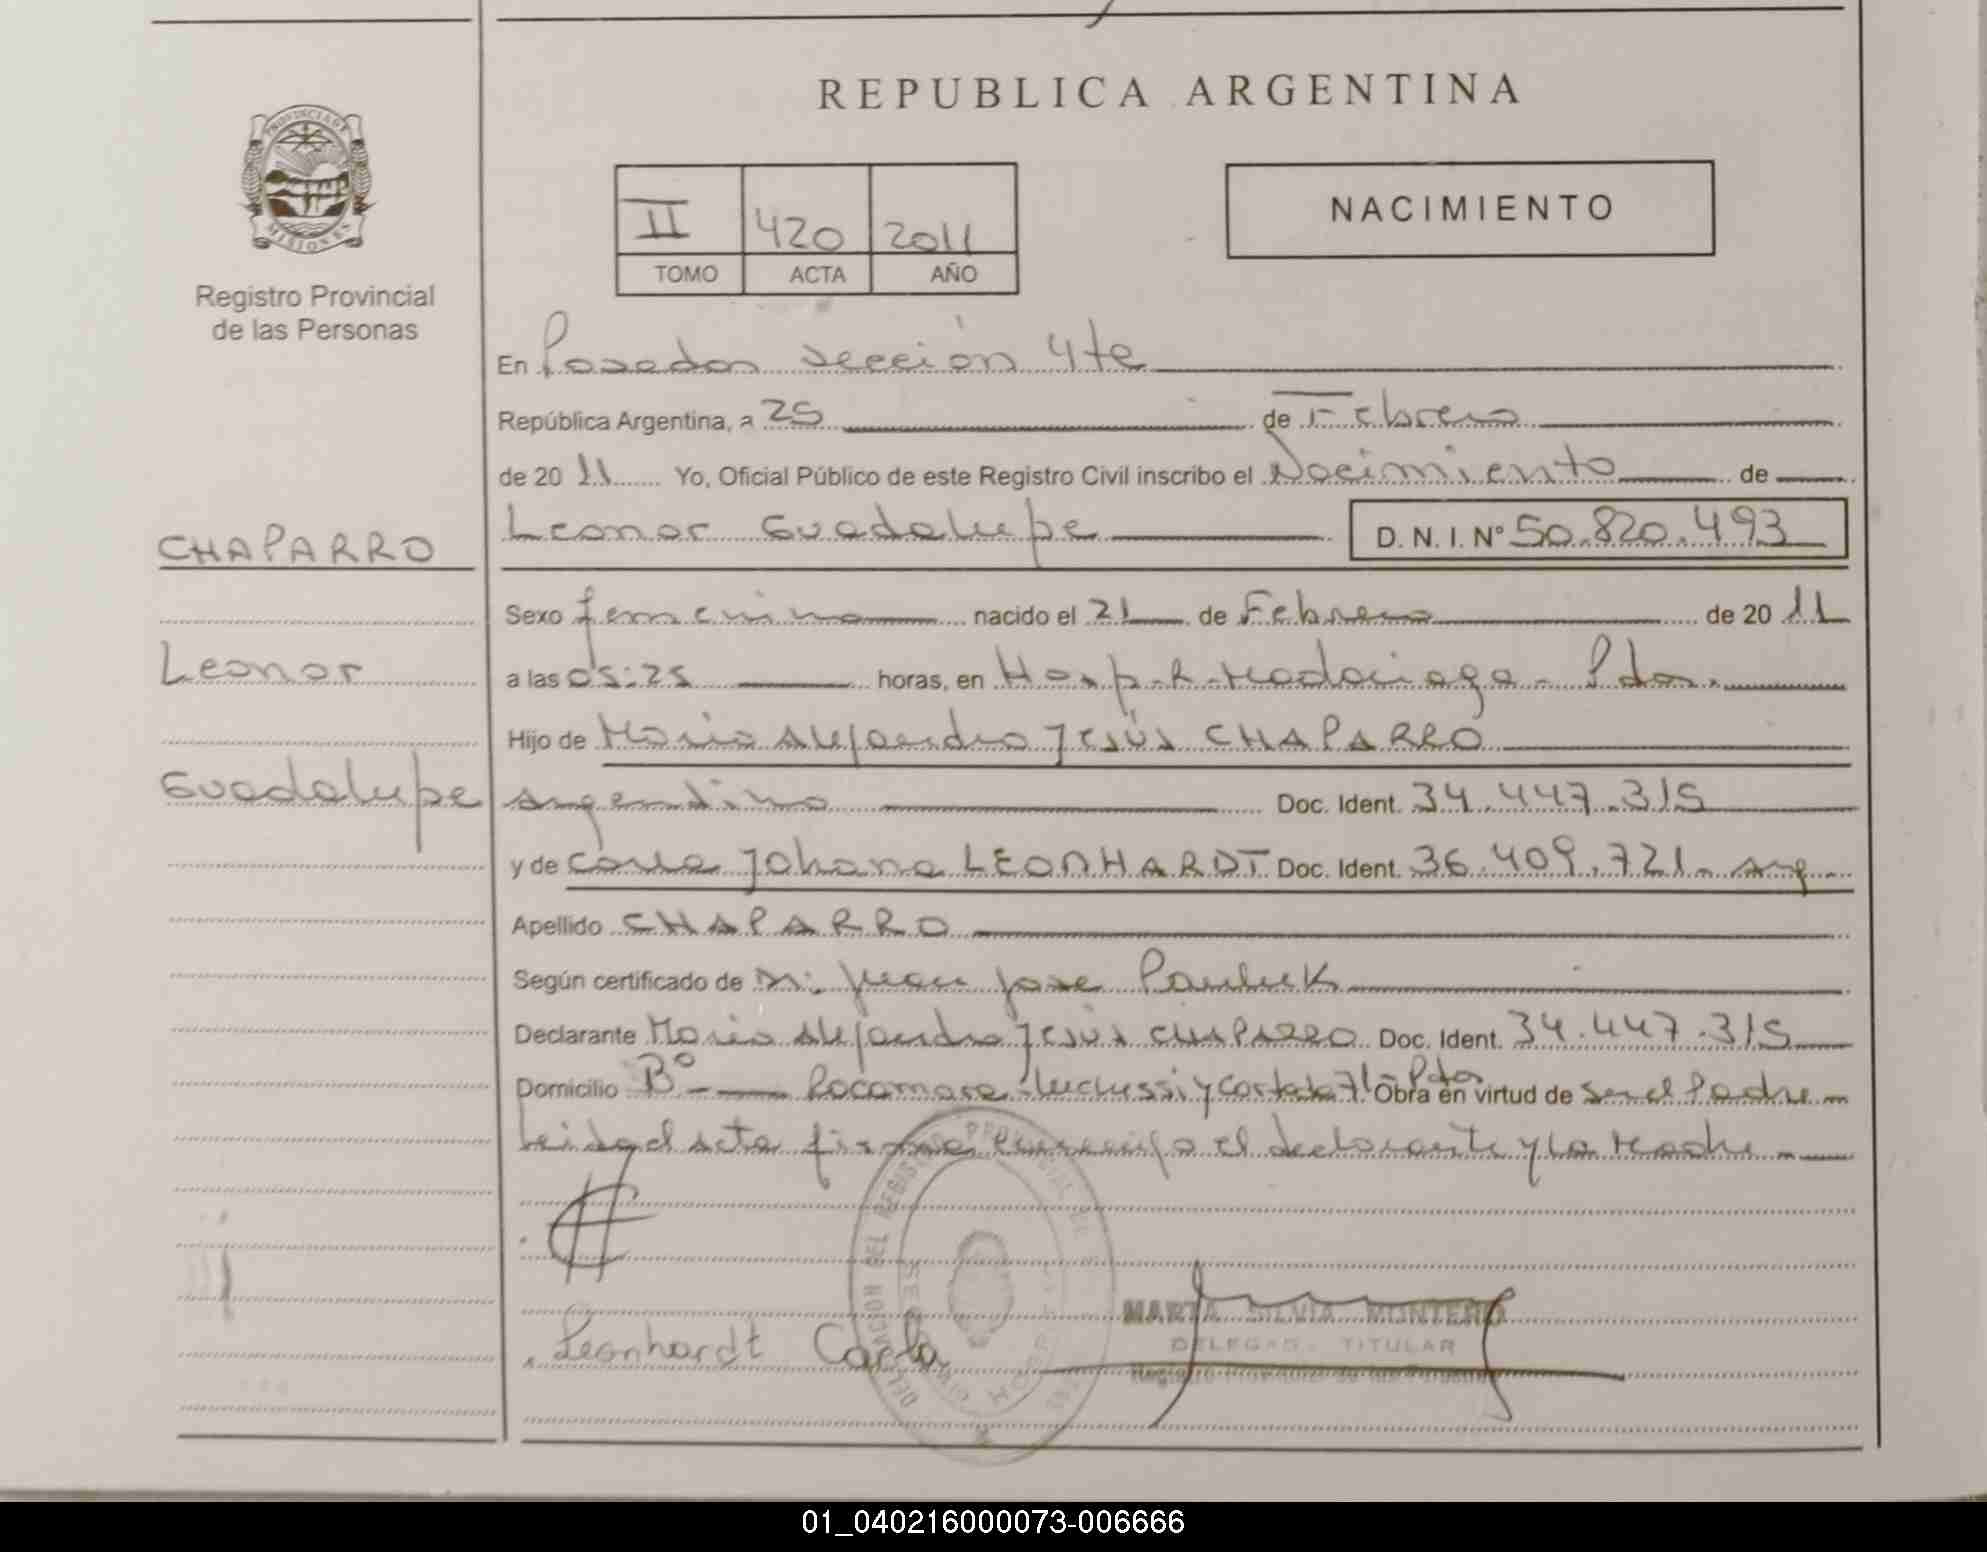 REPUBLICA ARGENTINA
PROVINCIA DE
MISIONES
Registro Provincial
de las Personas
II 420 2011
TOMO ACTA AÑO
NACIMIENTO
En Posadas sección 4ta
República Argentina, a 25 de Febrero
de 20 11 Yo, Oficial Público de este Registro Civil inscribo el Nacimiento de
CHAPARRO
Leonor Guadalupe D. N. I. N° 50.820.493
Sexo femenino nacido el 21 de Febrero de 20 11
Leonor
a las 05:25 horas, en Hosp. R. Madariaga - Pdas.
Hijo de Mario Alejandro Jesús CHAPARRO
Guadalupe
argentino Doc. Ident. 34.447.315
y de Carla Johana LEONHARDT Doc. Ident. 36.409.721- Arg.
Apellido CHAPARRO
Según certificado de Dr. Juan Jose Pauluk
Declarante Mario Alejandro Jesús CHAPARRO Doc. Ident. 34.447.315
Domicilio B° Rocamora Pdas Obra en virtud de ser el Padre
Leida el acta firma el declarante y la Madre
Leonhardt Carla
MARTA SILVIA MONTERO
DELEGADA TITULAR
Registro Provincial de las Personas
01_040216000073-006666